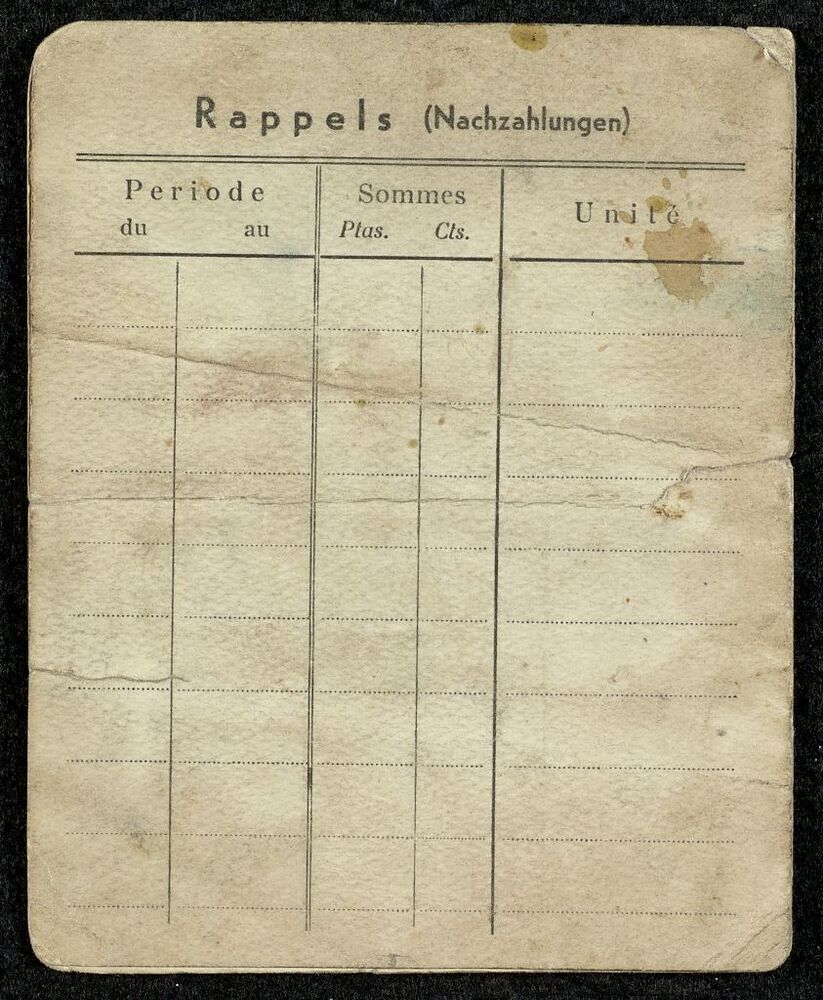 Rappels (Nachzahlungen)
Periode Sommes Unité
du au Ptas. Cts.